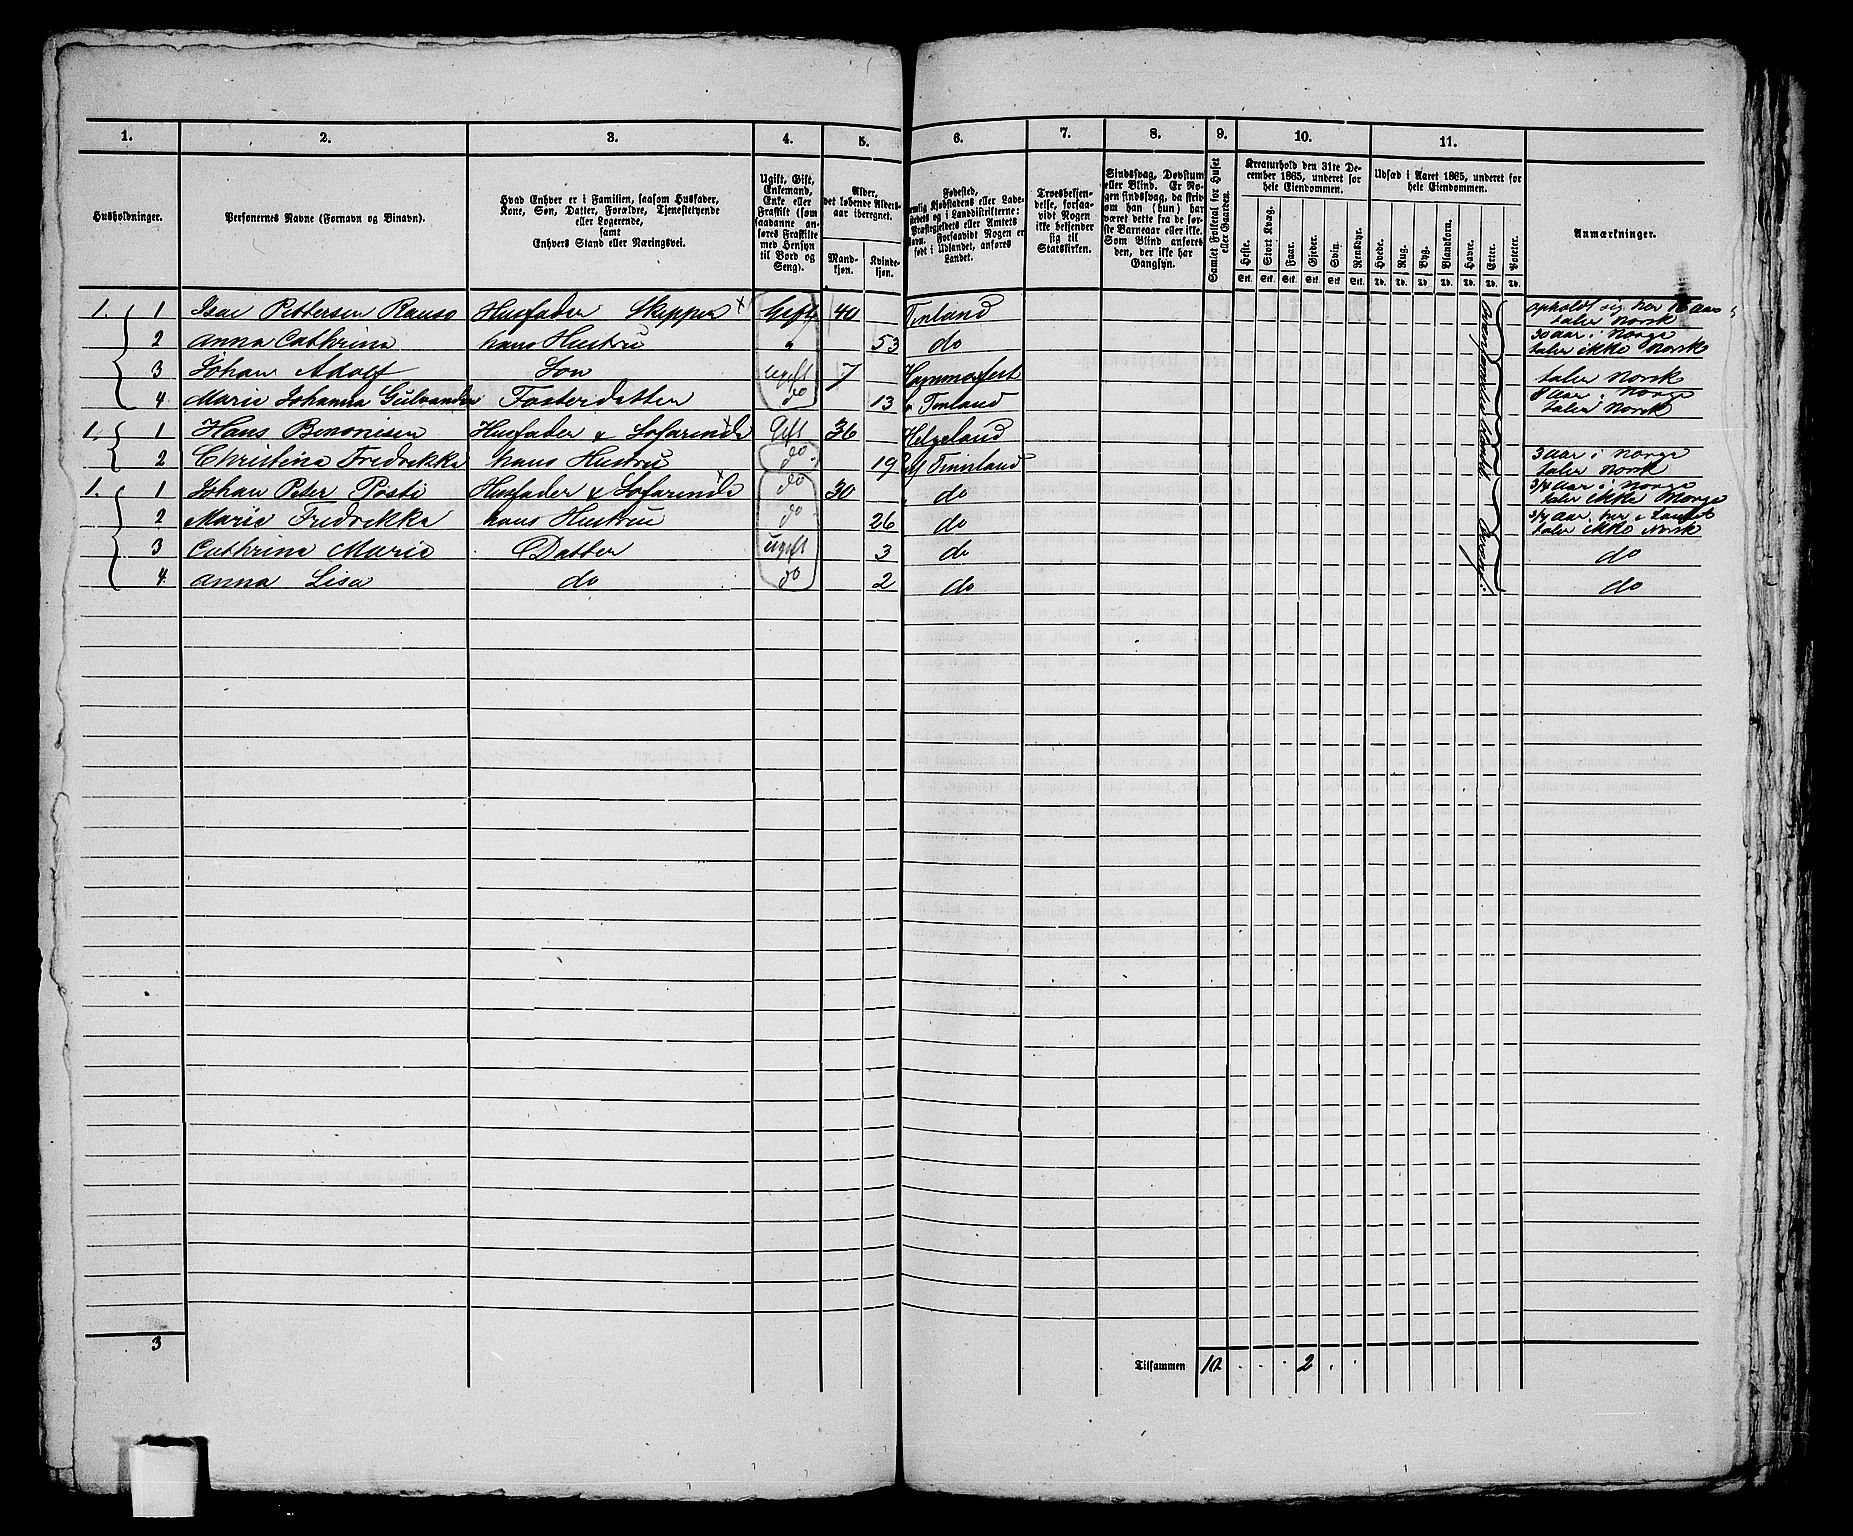 1. 2. 3. 4. 5. 6. 7. 8. 9. 10. 11.
Husholdninger.
Personernes Navne (Fornavn og Binavn).
Hvad Enhver er i Familien, saasom Husfader,
Kone, Søn, Datter, Forældre, Tjenestetyende
eller Logerende,
samt
Enhvers Stand eller Næringsvei.
Ugift, Gift,
Enkemand,
Enke eller
Fraskilt (som
saadanne an-
føres Fraskilte
med Hensyn
til Bord og
Seng).
Alder,
det løbende Alders-
aar iberegnet.
Mand-
kjøn.
Kvinde-
kjøn.
Fødested,
Troesbekjen-
delse, forsaa-
vidt Nogen
ikke bekjender
sig til
Statskirken.
Sindssvag, Døvstum
eller Blind. Er No-
gen sindssvag, da skriv
om han (hun) har
været dette fra de før-
ste Barneaar eller ikke.
Som Blind anføres
den, der ikke har
Gangsyn.
Samlet Folketal for Huset
eller Gaarden.
Kreaturhold den 31te De-
cember 1865, underet for
hele Eiendommen.
Heste. Stort Kvæg. Faar. Gjeder. Svin. Rensdyr.
Stk. Stk. Stk. Stk. Stk. Stk.
Udsæd i Aaret 1865, underet for
hele Eiendommen.
Hvede. Rug. Byg. Blandkorn. Havre. Erter. Poteter.
Td. Td. Td. Td. Td. Td. Td.
Anmærkninger.
1. 1 Isac Pettersen Husfader Skipper x Gift 40 Finland opholdt sig her 16 Aar
taler Norsk
2 Anna Cathrina hans Hustru " 53 do 30 aar i Norge
taler ikke Norsk
3 Johan Adolf Søn ugift 7 Hammerfest taler Norsk
4. Marie Johanna Fosterdatter do 13 Finland 8 Aar i Norge
taler Norsk
1. 1 Hans Benonisen Husfader & Søfarende x Gift 36 Helgeland
2 Christina Fredrikka hans Hustru do 19 Finnland 3 aar i Norge
taler Norsk
1. 1 Johan Peter Posti Husfader & Søfarende x do 30 do 3/4 aar i Norge
taler ikke Norge
2 Marie Fredrikka hans Hustru do 26 do 3/4 aar her i Landet
taler ikke Norsk
3 Cathrina Marie Datter ugift 3 do do
4 Anna Lisa do do 2 do do
3
Tilsammen 10 2